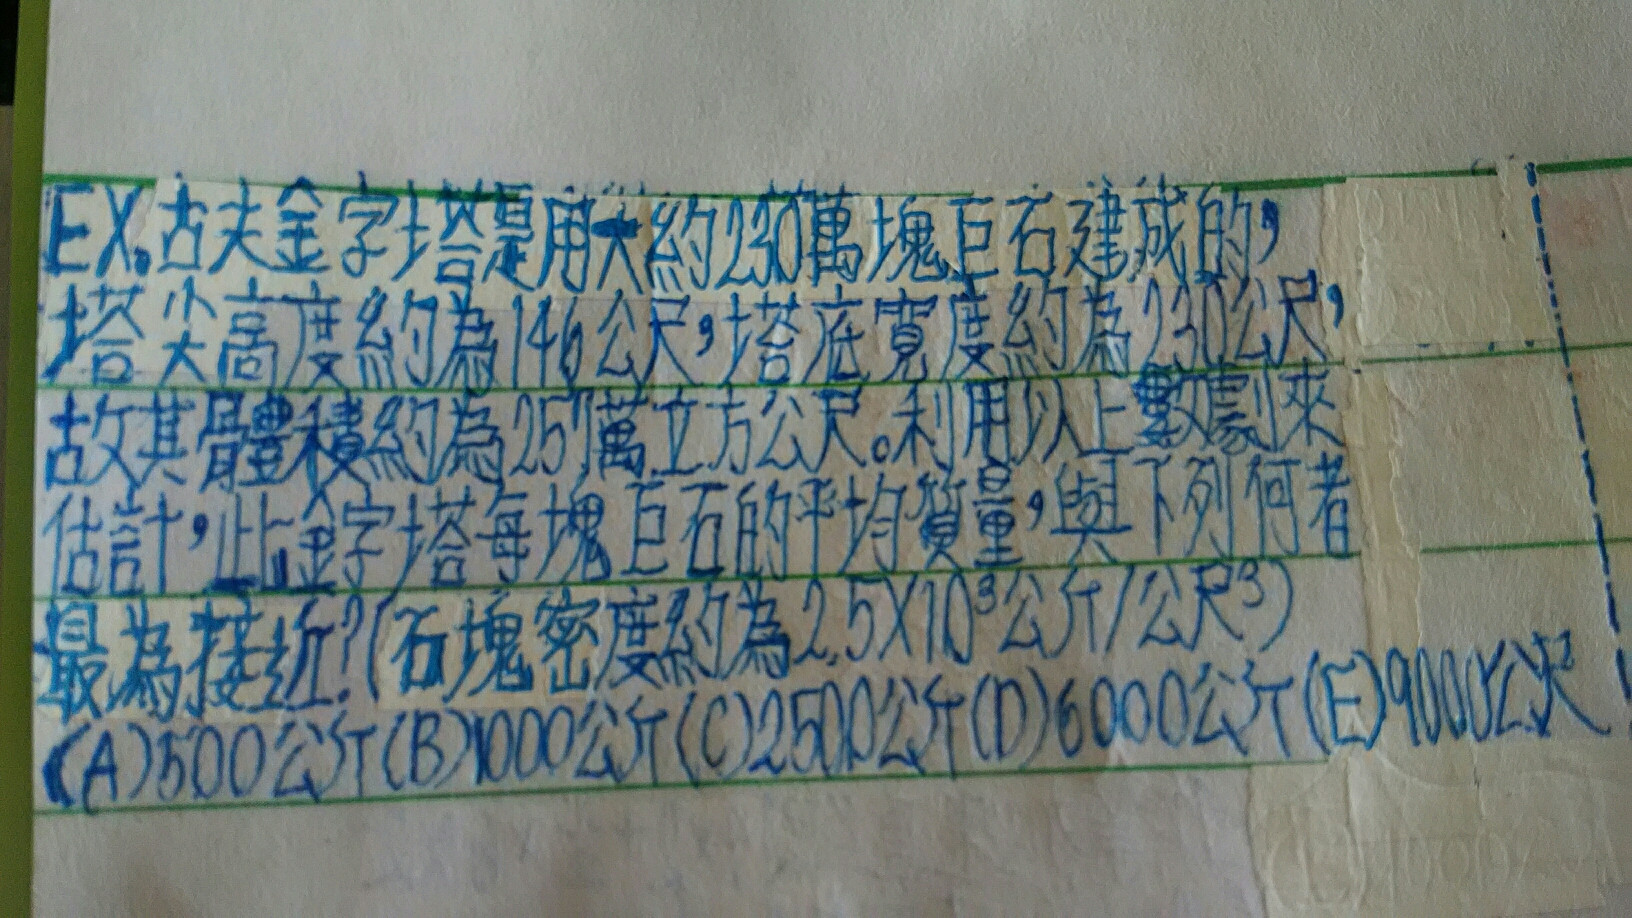 EX.古夫金字塔是用大約230萬塊巨石建成的，
塔尖高度約為146公尺，塔底寬度約為230公尺，
故其體積約為257萬立方公尺。利用以上數據來
估計，此金字塔每塊巨石的平均質量，與下列何者
最為接近？(石塊密度約為2.5X10³公斤/公尺³)
(A)500公斤(B)1000公斤(C)2500公斤(D)6000公斤(E)9000公尺